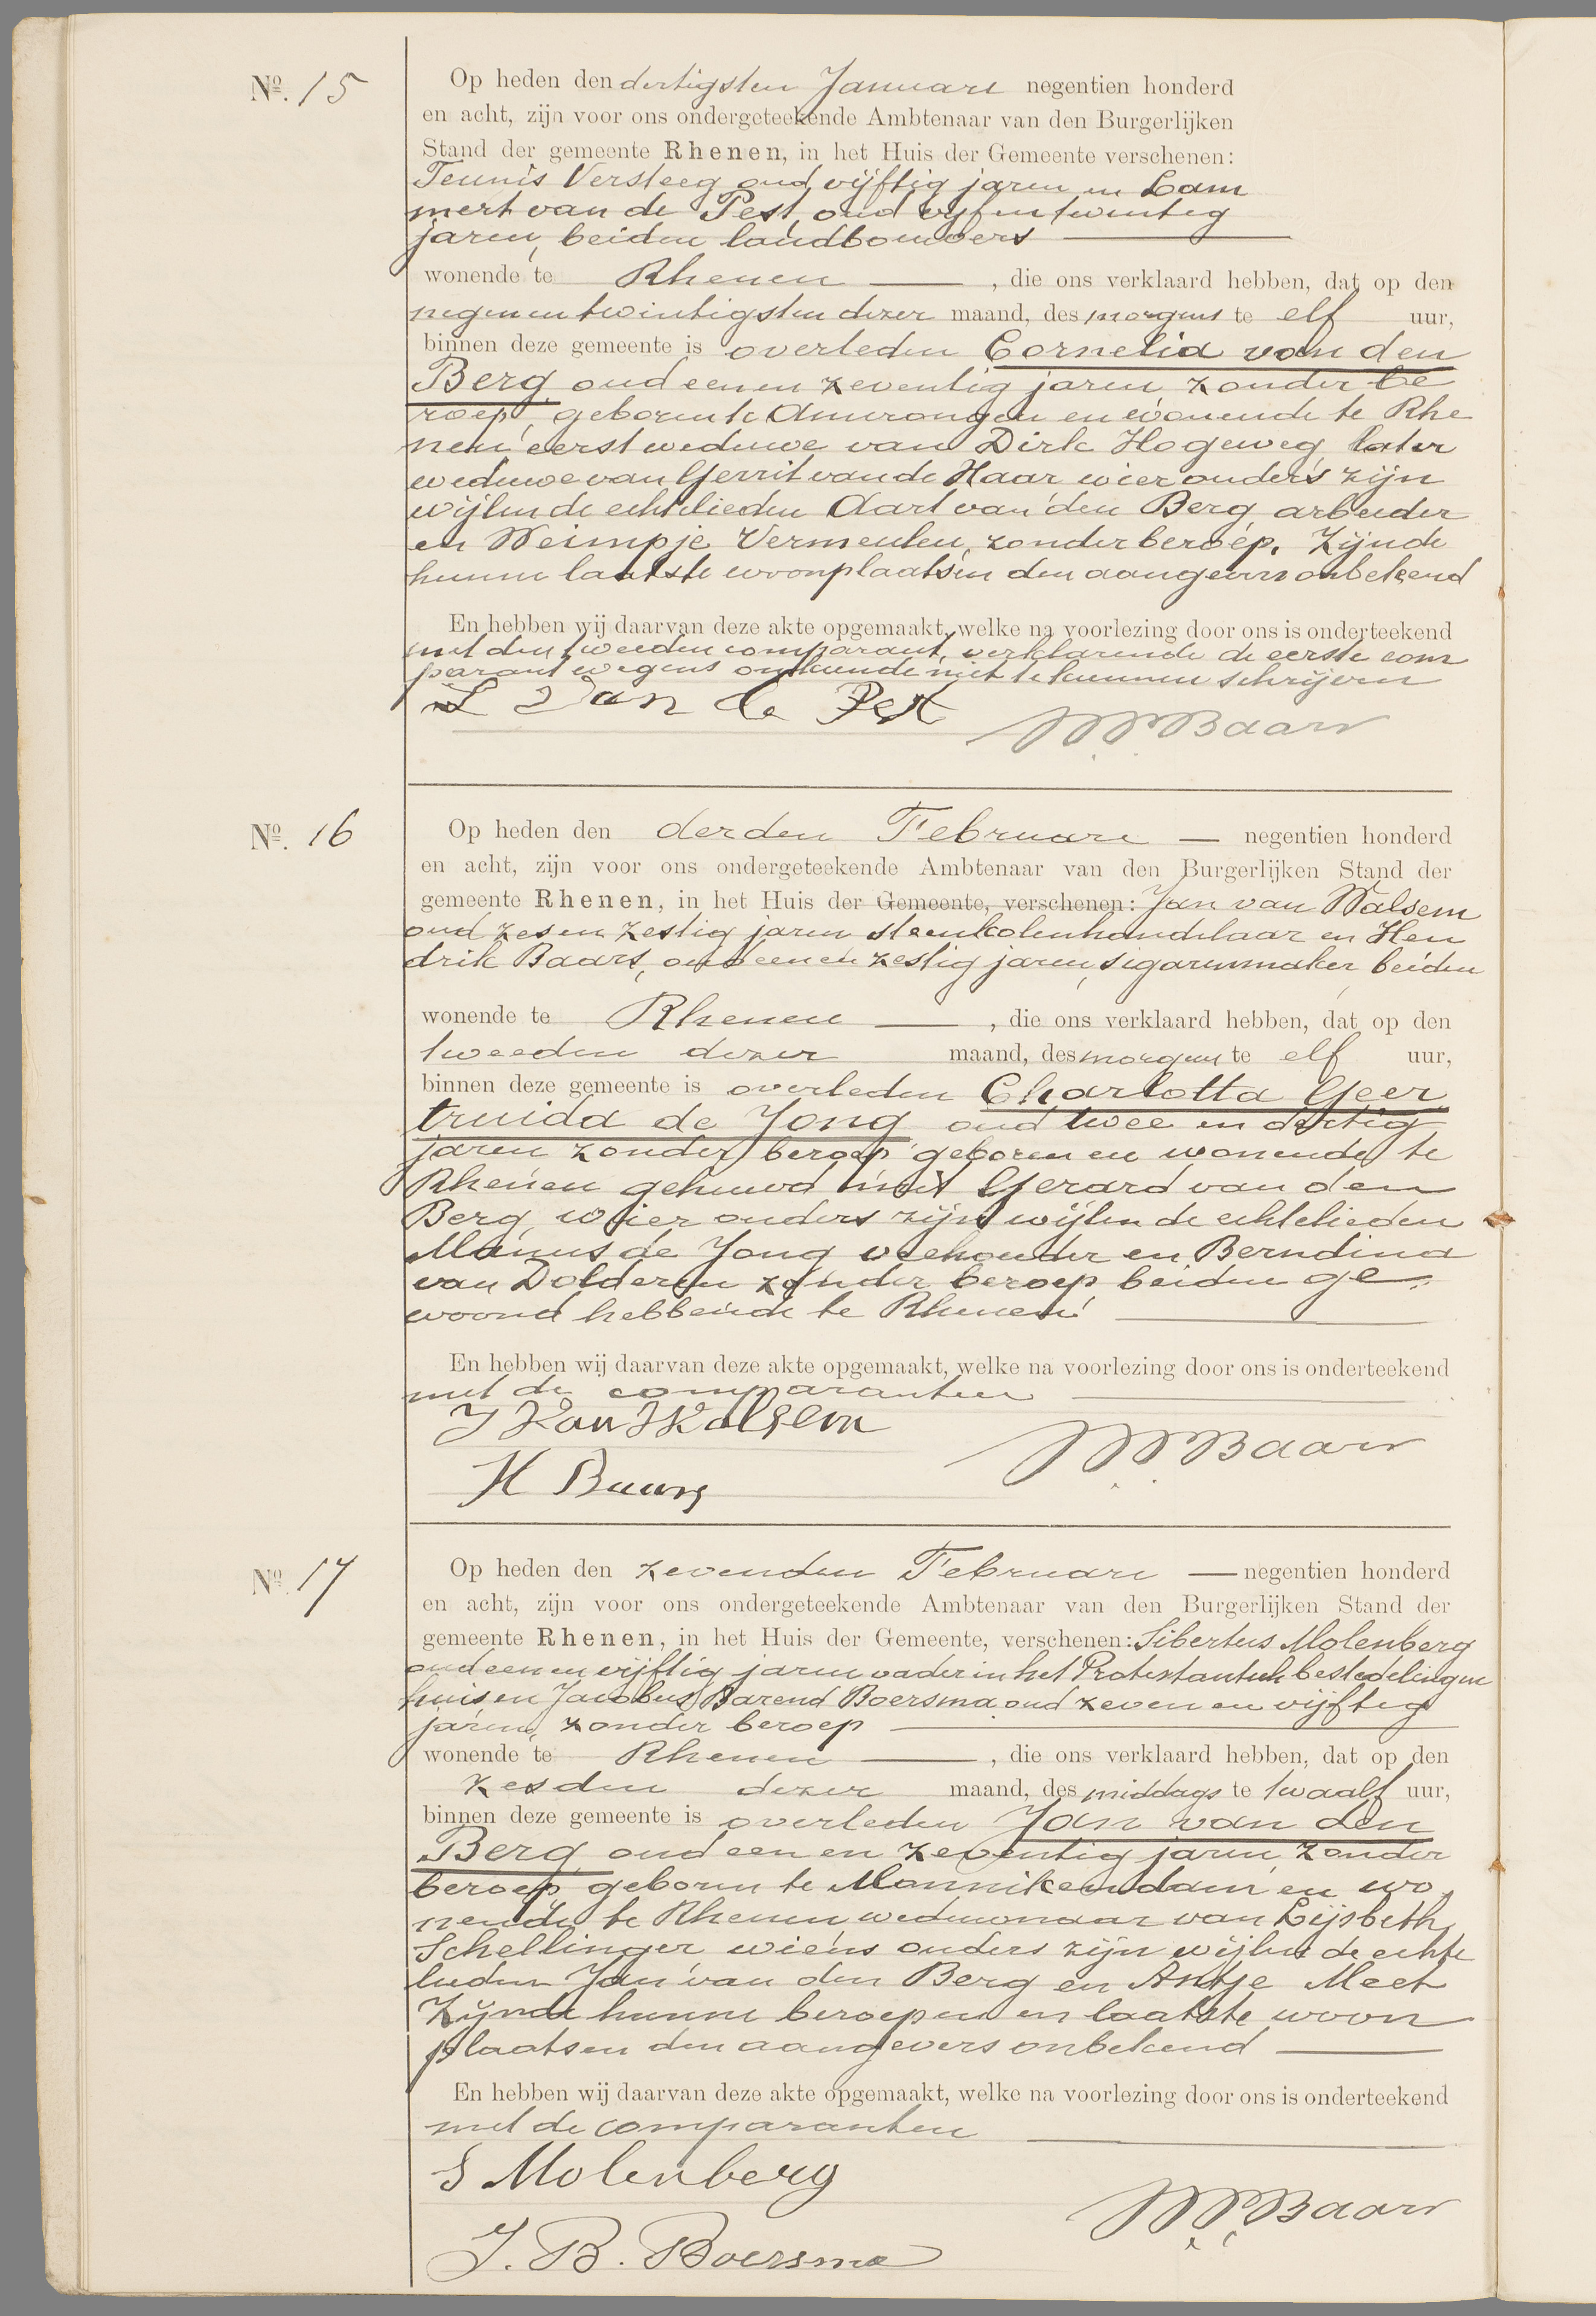 Nº. 15
Op heden den dertigsten Januari negentien honderd
en acht, zijn voor ons ondergeteekende Ambtenaar van den Burgerlijken
Stand der gemeente Rhenen, in het Huis der Gemeente verschenen:
Teunis Versteeg oud vijftig jaren en Lam
mert van de Pest, oud vijfentwintig
jaren, beiden landbouwers
wonende te Rhenen, die ons verklaard hebben, dat op den
negenentwintigsten dezer maand, des morgens te elf uur,
binnen deze gemeente is overleden Cornelia van den
Berg oud eenen zeventig jaren zonder be
roep, geboren te Amerongen en wonende te Rhe
nen eerst weduwe van Dirk Hogeweg, later
weduwe van Gerrit van de Haar wier ouders zijn
wijlen de echtelieden Aart van den Berg arbeider
en Weimpje Vermeulen, zonder beroep. Zijnde
hunne laatste woonplaatsen den aangevers onbekend
En hebben wij daarvan deze akte opgemaakt, welke na voorlezing door ons is onderteekend
met den tweeden comparant, verklarende de eerste com
parant wegens onkunde niet te kunnen schrijven
L van de Pest
Baars
Nº. 16
Op heden den derden Februari negentien honderd
en acht, zijn voor ons ondergeteekende Ambtenaar van den Burgerlijken Stand der
gemeente Rhenen, in het Huis der Gemeente, verschenen: Jan van Walsem
oud zesen zestig jaren steenkolenhandelaar en Hen
drik Baars, oud eenen zestig jaren, sigarenmaker, beiden
wonende te Rhenen, die ons verklaard hebben, dat op den
tweeden dezer maand, des morgens te elf uur,
binnen deze gemeente is overleden Charlotta Geer
truida de Jong oud twee en dertig
jaren zonder beroep geboren en wonende te
Rhenen gehuwd met Gerard van den
Berg, wier ouders zijn wijlen de echtelieden
Manus de Jong veehouder en Berndina
van Dolderen zonder beroep, beiden ge
woond hebbende te Rhenen
En hebben wij daarvan deze akte opgemaakt, welke na voorlezing door ons is onderteekend
met de comparanten
J Van Walsem
Baars
H Baars
Nº. 17
Op heden den zevenden Februari negentien honderd
en acht, zijn voor ons ondergeteekende Ambtenaar van den Burgerlijken Stand der
gemeente Rhenen, in het Huis der Gemeente, verschenen: Sibertus Molenberg
oud eenen vijftig jaren vader in het Protestantsch bestedelingen
huis en Jacobus Barend Boersma oud zeven en vijftig
jaren, zonder beroep
wonende te Rhenen, die ons verklaard hebben, dat op den
zesden dezer maand, des middags te twaalf uur,
binnen deze gemeente is overleden Jan van den
Berg oud een en zeventig jaren, zonder
beroep geboren te Monnikendam en wo
nende te Rhenen weduwnaar van Lijsbeth
Schellinger wiens ouders zijn wijlen de echte
lieden Jan van den Berg en Antje Meet
Zijnde hunne beroepen en laatste woon
plaatsen den aangevers onbekend
En hebben wij daarvan deze akte opgemaakt, welke na voorlezing door ons is onderteekend
met de comparanten
S Molenberg
Baars
J. B. Boersma